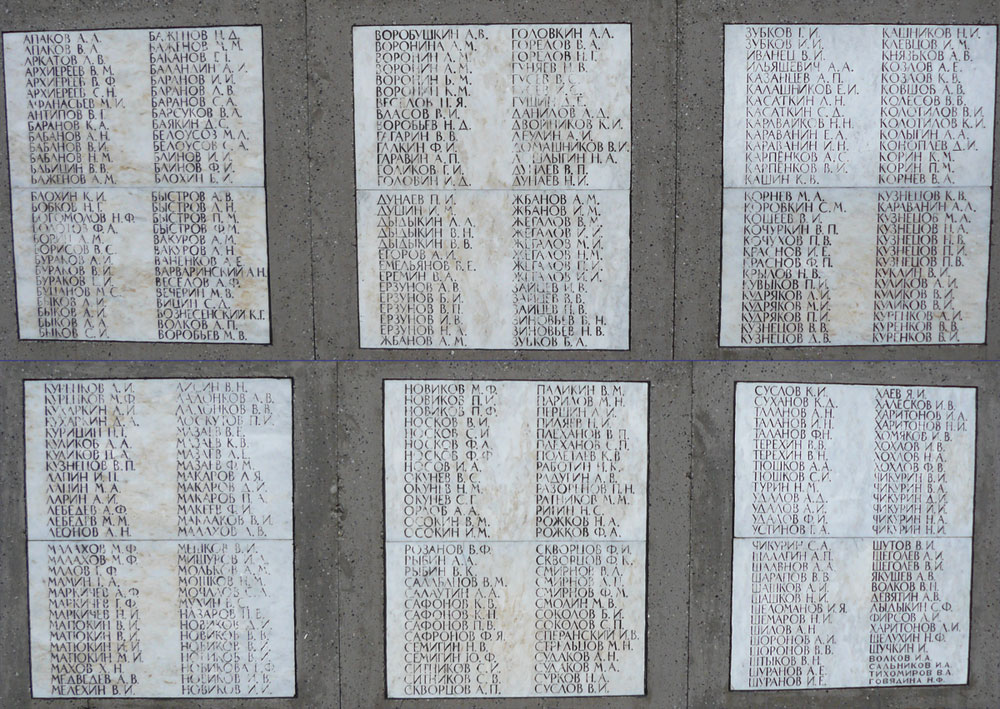 АПАКОВ А.А.
АПАКОВ В.А.
АРКАТОВ Л.В.
АРХИЕРЕЕВ В.М.
АРХИЕРЕЕВ В.Ф.
АРХИЕРЕЕВ С.Н.
АФАНАСЬЕВ М.И.
АНТИПОВ В.Г.
БАРАНОВ К.А.
БАБАНОВ А.Н.
БАБАНОВ В.И.
БАБАНОВ Н.М.
БАБИЦИН В.В.
БАЖЕНОВ А.М.
БАЖЕНОВ Н.Д.
БАЖЕНОВ М.М.
БАКАНОВ Г.В.
БАЛАНДИН А.И.
БАРАНОВ И.И.
БАРАНОВ Л.В.
БАРАНОВ С.А.
БАРСУКОВ В.А.
БАЯКИН Д.С.
БЕЛОУСОВ М.А.
БЕЛОУСОВ С.А.
БЛИНОВ И.И.
БЛИНОВ Ф.И.
БЛОХИН Е.И.
БЛОХИН К.И.
БОБКОВ Н.Г.
БОГОМОЛОВ Н.Ф.
БОРИСОВ В.С.
БУРАКОВ В.И.
БУРАКОВ Г.И.
БЫКОВ А.И.
БЫКОВ А.И.
БЫКОВ С.И.
БЫСТРОВ А.В.
БЫСТРОВ Д.Ф.
БЫСТРОВ П.М.
БЫСТРОВ Ф.М.
ВАКУРОВ А.М.
ВАКУРОВ А.Н.
ВАНЕНКОВ А.Е.
ВАРВАРИНСКИЙ А.Н.
ВЕСЕЛОВ А.Ф.
ВЕЧЕРИН М.В.
ВИЦИН С.Д.
ВОЗНЕСЕНСКИЙ К.Г.
ВОЛКОВ А.П.
ВОРОБЬЕВ М.В.
ВОРОБУШКИН А.В.
ВОРОНИНА А.М.
ВОРОНИН А.М.
ВОРОНИН А.М.
ВОРОНИН В.М.
ВОРОНИН К.М.
ВЕСЕЛОВ П.Я.
ВЛАСОВ В.И.
ВОРОБЬЕВ Н.Д.
ГАГАРИН В.В.
ГАЛКИН Ф.И.
ГАРАВИН А.П.
ГОЛИКОВ Г.И.
ГОЛОВИН И.Д.
ГОЛОВКИН А.А.
ГОРЕЛОВ В.А.
ГОРЕЛОВ Н.Г.
ГУСЕВ В.С.
ГУЩИН Д.Е.
ДАНИЛОВ А.Д.
ДВОРНИКОВ К.И.
ДОМАШНИКОВ В.И.
ДУНАЕВ В.П.
ДУНАЕВ Н.И.
ДУНАЕВ П.И.
ДУШИН И.М.
ДЫДЫКИН А.А.
ДЫДЫКИН В.Н.
ДЫДЫКИН В.В.
ЕГОРОВ А.И.
ЕМЕЛЬЯНОВ Б.Е.
ЕРЕМИН А.Г.
ЕРЗУНОВ А.В.
ЕРЗУНОВ Б.И.
ЕРЗУНОВ В.П.
ЕРЗУНОВ Г.А.
ЕРЗУНОВ Н.А.
ЖБАНОВ А.М.
ЖБАНОВ А.М.
ЖБАНОВ И.М.
ЖЕГАЛОВ В.М.
ЖЕГАЛОВ И.М.
ЖЕГАЛОВ М.И.
ЖЕГАЛОВ Н.М.
ЖЕГАЛОВ П.И.
ЖЕГАЛОВ И.И.
ЗАЙЦЕВ И.В.
ЗАЙЦЕВ В.В.
ЗАЙЦЕВ П.В.
ЗИНОВЬЕВ Б.Н.
ЗИНОВЬЕВ Н.В.
ЗУБКОВ Б.А.
ЗУБКОВ Г.И.
ЗУБКОВ И.И.
ИВАНЕЦ В.И.
ИЛЬЯШЕВИЧ А.А.
КАЗАНЦЕВ А.П.
КАЛАШНИКОВ Е.И.
КАСАТКИН Л.Н.
КАСАТКИН С.Д.
КАРАВАЙКОВ Н.Н.
КАРАВАНИН Е.А.
КАРАВАНИН И.Н.
КАРПЕНКОВ А.С.
КАРПЕНКОВ В.В.
КАШИН К.В.
КАШНИКОВ Н.И.
КЛЕВЦОВ И.М.
КНЯЗЬКОВ А.В.
КОЗЛОВ А.Е.
КОЗЛОВ К.В.
КОВШОВ А.В.
КОЛЕСОВ В.В.
КОЛОТИЛОВ В.И.
КОЛОТИЛОВ К.И.
КОЛЫГИН А.А.
КОНОПЛЕВ Д.И.
КОРИН К.М.
КОРИН П.М.
КОРНЕВ В.А.
КОРНЕВ М.А.
КОРОВКИН С.М.
КОЩЕЕВ В.И.
КОЧУРКИН В.П.
КОЧУХОВ П.В.
КРАСНОВ И.Е.
КРАСНОВ Ф.П.
КРЫЛОВ Н.В.
КУВЫКОВ П.И.
КУДРЯКОВ А.И.
КУДРЯКОВ А.И.
КУДРЯКОВ П.И.
КУЗНЕЦОВ В.В.
КУЗНЕЦОВ Д.В.
КУЗНЕЦОВ К.В.
КАРАВАНИН А.А.
КУЗНЕЦОВ М.А.
КУЗНЕЦОВ Н.В.
КУЗНЕЦОВ Н.В.
КУЗНЕЦОВ П.В.
КУКЛИН В.И.
КУЛИКОВ А.И.
КУЛИКОВ В.И.
КУЛИКОВ В.И.
КУРЕНКОВ А.И.
КУРЕНКОВ В.В.
КУРЕНКОВ В.И.
КУРЕНКОВ Л.И.
КУРЕНКОВ М.Ф.
КУХАРКИН А.И.
КУХАРКИН Д.А.
КУЛИКОВ Н.А.
КУЛИКОВ П.А.
КУЗНЕЦОВ В.П.
ЛАПИН И.П.
ЛАПИН М.А.
ЛАРИН А.И.
ЛЕБЕДЕВ А.Ф.
ЛЕБЕДЕВ М.М.
ЛЕОНОВ А.Н.
ЛОСКУТОВ П.И.
МАЗАЕВ В.Е.
МАЗАЕВ К.В.
МАЗАЕВ А.Е.
МАЗАЕВ Ф.М.
МАКАРОВ А.Я.
МАКАРОВ В.А.
МАКАРОВ П.А.
МАКЕЕВ Ф.И.
МАЛАХОВ М.Ф.
МАЛАХОВ М.Ф.
МАЛОВ Г.Ф.
МАМИН Г.А.
МАРКИЧЕВ А.Ф.
МАРКИЧЕВ Г.Ф.
МАРКИЧЕВ Н.И.
МАТЮКИН В.И.
МАТЮКИН В.И.
МАТЮКИН М.И.
МАХОВ А.Н.
МЕДВЕДЕВ А.В.
МЕЛЕХИН В.И.
МОШКОВ Н.М.
НАЗАРОВ П.Е.
НОВИКОВ А.И.
НОВИКОВ В.В.
НОВИКОВ В.И.
НОВИКОВ Г.Ф.
НОВИКОВ И.И.
НОВИКОВ М.Ф.
НОВИКОВ П.И.
НОВИКОВ П.Ф.
НОСКОВ В.И.
НОСКОВ С.И.
НОСКОВ Ф.А.
НОСКОВ Ф.Ф.
НОСОВ И.А.
ОКУНЕВ В.С.
ОКУНЕВ Н.М.
ОКУНЕВ С.Г.
ОРЛОВ А.А.
ОСОКИН В.М.
ОСОКИН И.М.
ПАЛИКИН В.М.
ПАРИЛОВ М.Н.
ПЕРШИН А.И.
ПИЛЯЕВ Н.И.
ПЛЕХАНОВ В.П.
ПЛЕХАНОВ С.П.
ПОЛЕТАЕВ К.В.
РАБОТИН Н.К.
РАДУГИН А.В.
РАЗОРЕНОВ П.Н.
РАТНИКОВ М.М.
РЕПИН Н.С.
РОЖКОВ Н.А.
РОЖКОВ Ф.А.
РОЗАНОВ В.Ф.
РЫБИН А.А.
РЫБИН В.К.
САЛАБАНОВ В.М.
САЛАУТИН А.А.
САФОНОВ К.В.
САФОНОВ К.Н.
САФОНОВ П.В.
САФРОНОВ Ф.Я.
СЕМИГИН Н.В.
СЕМИГИН Ю.Ф.
СИТНИКОВ С.И.
СИТНИКОВ С.В.
СКВОРЦОВ А.П.
СКВОРЦОВ Ф.И.
СКВОРЦОВ Ф.К.
СМИРНОВ В.А.
СМИРНОВ Л.П.
СМИРНОВ Ф.М.
СМОЛИН М.В.
СОКОЛОВ Б.И.
СОКОЛОВ С.П.
СПЕРАНСКИЙ И.В.
СТРЕЛЬЦОВ М.Н.
СУДАКОВ А.Н.
СУДАКОВ М.А.
СУРКОВ Н.А.
СУСЛОВ В.И.
СУСЛОВ К.И.
СУХАНОВ К.Д.
ТАЛАНОВ А.Н.
ТАЛАНОВ И.Н.
ТАЛАНОВ Ф.Н.
ТЕРЕХИН В.В.
ТЕРЕХИН В.Н.
ТЮШКОВ А.А.
ТЮШКОВ С.И.
ТУРИН Н.М.
УДАЛОВ А.Д.
УДАЛОВ А.И.
УДАЛОВ Ф.И.
УСТИНОВ Г.А.
ХАЕВ Я.И.
ХАЛЕСКОВ И.В.
ХАРИТОНОВ И.Д.
ХАРИТОНОВ Н.И.
ХОМЯКОВ И.В.
ХОХЛОВ И.В.
ХОХЛОВ Н.А.
ХОХЛОВ Ф.В.
ЧИКУРИН В.И.
ЧИКУРИН В.А.
ЧИКУРИН Д.И.
ЧИКУРИН И.И.
ЧИКУРИН Н.А.
ЧИКУРИН Н.И.
ЧИКУРИН С.А.
ШАЛАГИН А.П.
ШАЛАВНОВ А.А.
ШАРАПОВ В.В.
ШАШКОВ А.И.
ШАШКОВ Н.И.
ШЕЛОМАНОВ И.Я.
ШЕМАРОВ Н.И.
ШИЛОВ А.Н.
ШОРОНОВ А.И.
ШОРОНОВ В.В.
ШТЫКОВ В.Н.
ШУРАНОВ А.Е.
ШУРАНОВ И.Е.
ШУТОВ В.И.
ЩЕГОЛЕВ А.И.
ЩЕГОЛЕВ В.И.
ЯКУШЕВ А.В.
ВОЛКОВ В.Н.
ДЕВЯТИН А.В.
ЛЫДЫКИН С.Ф.
ФИРСОВ А.И.
ХАРИТОНОВ А.И.
ШЕЛУХИН Н.Ф.
ЩУЧКИН И.
ВОЛКОВ И.А.
САЛЬНИКОВ И.А.
ТИХОМИРОВ В.А.
ГОВЯДИНА Н.Ф.